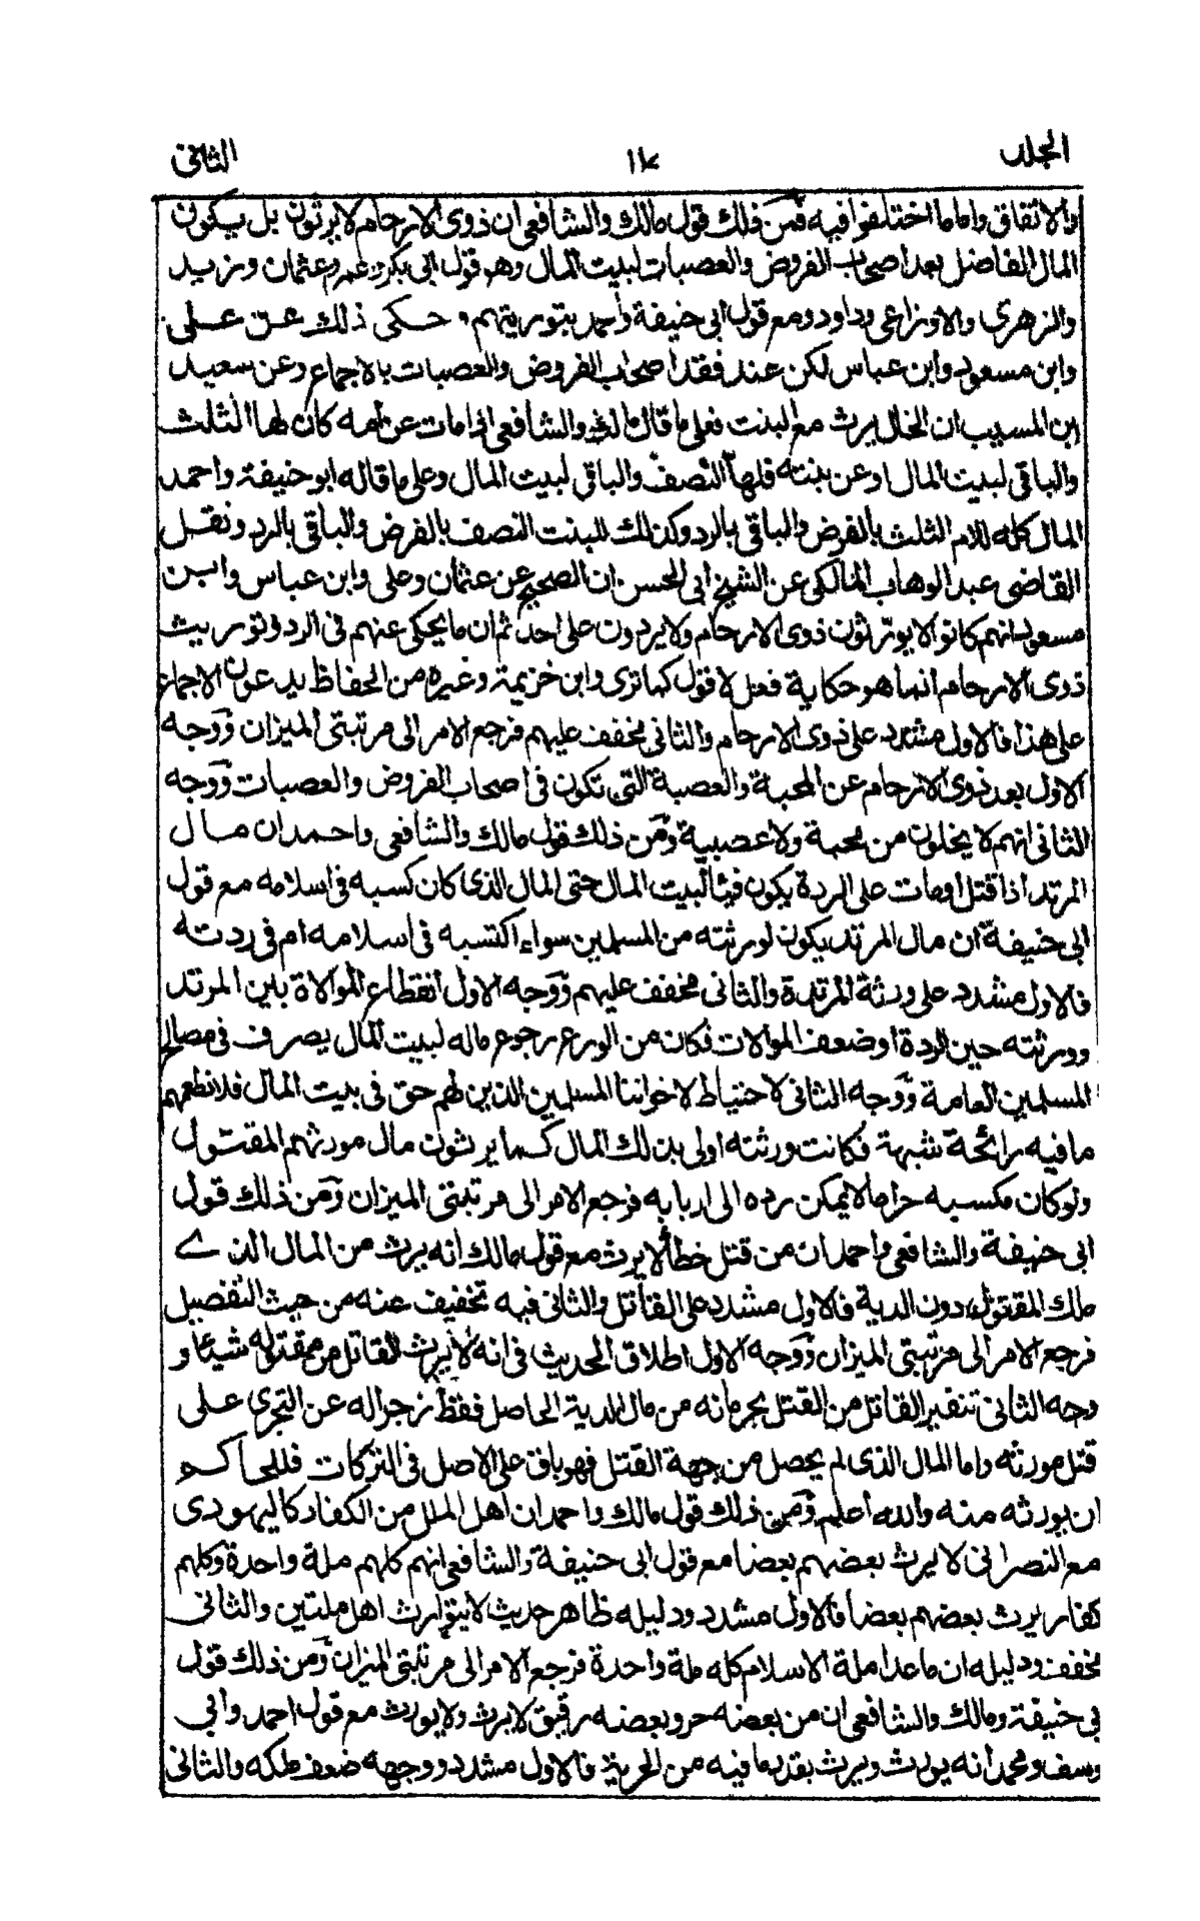 المجلد ١١٧ الثانى
والاتفاق واما ما اختلفوا فيه فمن ذلك قول مالك والشافعى ان ذوى الارحام لا يرثون بل يكون
المال الفاضل بعد اصحاب الفروض والعصبات لبيت المال وهو قول ابى بكر وعمر وعثمان وزيد
والزهرى والاوزاعى وداود ومع قول ابى حنيفة واحمد بتوريثهم وحكى ذلك عن على
وابن مسعود وابن عباس لكن عند فقد اصحاب الفروض والعصبات بالاجماع وعن سعيد
ابن المسيب ان الخال يرث مع البنت فعلى ما قال مالك والشافعى اذا مات عن امه كان لها الثلث
والباقى لبيت المال او عن بنته فلها النصف والباقى لبيت المال وعلى ما قاله ابو حنيفة واحمد
المال كله للام الثلث بالفرض والباقى بالرد وكذلك للبنت النصف بالفرض والباقى بالرد ونقل
القاضى عبد الوهاب المالكى عن الشيخ ابى الحسن ان الصحيح عن عثمان وعلى وابن عباس وابن
مسعود انهم كانوا لا يورثون ذوى الارحام ولا يردون على احد ثم ان ما يحكى عنهم فى الرد وتوريث
ذوى الارحام انما هو حكاية فعل لا قول كما ترى وابن خزيمة وغيره من الحفاظ يدعون الاجماع
على هذا فالاول مشدد على ذوى الارحام والثانى مخفف عليهم فرجع الامر الى مرتبتى الميزان ووجه
الاول بعد ذوى الارحام عن المحبة والعصبة التى تكون فى اصحاب الفروض والعصبات ووجه
الثانى انهم لا يخلون من محبة ولا عصبية ومن ذلك قول مالك والشافعى واحمد ان مال
المرتد اذا قتل او مات على الردة يكون فيئا لبيت المال حتى المال الذى كان كسبه فى اسلامه مع قول
ابى حنيفة ان مال المرتد يكون لورثته من المسلمين سواء اكتسبه فى اسلامه ام فى ردته
فالاول مشدد على ورثة المرتدة والثانى مخفف عليهم ووجه الاول انقطاع الموالاة بين المرتد
وورثته حين الردة او ضعف الموالات فكان من الورع رجوع ماله لبيت المال يصرف فى مصالح
المسلمين العامة ووجه الثانى الاحتياط لاخواننا المسلمين الذين لهم حق فى بيت المال فلا نطعمهم
ما فيه رائحة شبهة فكانت ورثته اولى بذلك المال كما يرثون مال مورثهم المقتول
ولو كان مكسبه حراما لا يمكن رده الى اربابه فرجع الامر الى مرتبتى الميزان ومن ذلك قول
ابى حنيفة والشافعى واحمد ان من قتل خطأ لا يرث مع قول مالك انه يرث من المال الذى
ملك المقتول دون الدية فالاول مشدد على القاتل والثانى فيه تخفيف عنه من حيث التفصيل
فرجع الامر الى مرتبتى الميزان ووجه الاول اطلاق الحديث فى انه لا يرث القاتل من مقتوله شيئا و
وجه الثانى تنفير القاتل من القتل بحرمانه من مال الدية الحاصل فقط زجرا له عن التجرى على
قتل مورثه واما المال الذى لم يحصل من جهة القتل فهو باق على الاصل فى التركات فللحاكم
ان يورثه منه والله اعلم ومن ذلك قول مالك واحمد ان اهل الملل من الكفار كاليهودى
مع النصرانى لا يرث بعضهم بعضا مع قول ابى حنيفة والشافعى انهم كلهم ملة واحدة وكلهم
كفار يرث بعضهم بعضا فالاول مشدد ودليله ظاهر حديث لا يتوارث اهل ملتين والثانى
مخفف ودليله ان ما عدا ملة الاسلام كله ملة واحدة فرجع الامر الى مرتبتى الميزان ومن ذلك قول
بى حنيفة ومالك والشافعى ان من بعضه حر وبعضه رقيق لا يرث ولا يورث مع قول احمد وابي
وسف ومحمد انه يورث ويرث بقدر ما فيه من الحرية فالاول مشدد ووجهه ضعف ملكه والثانى